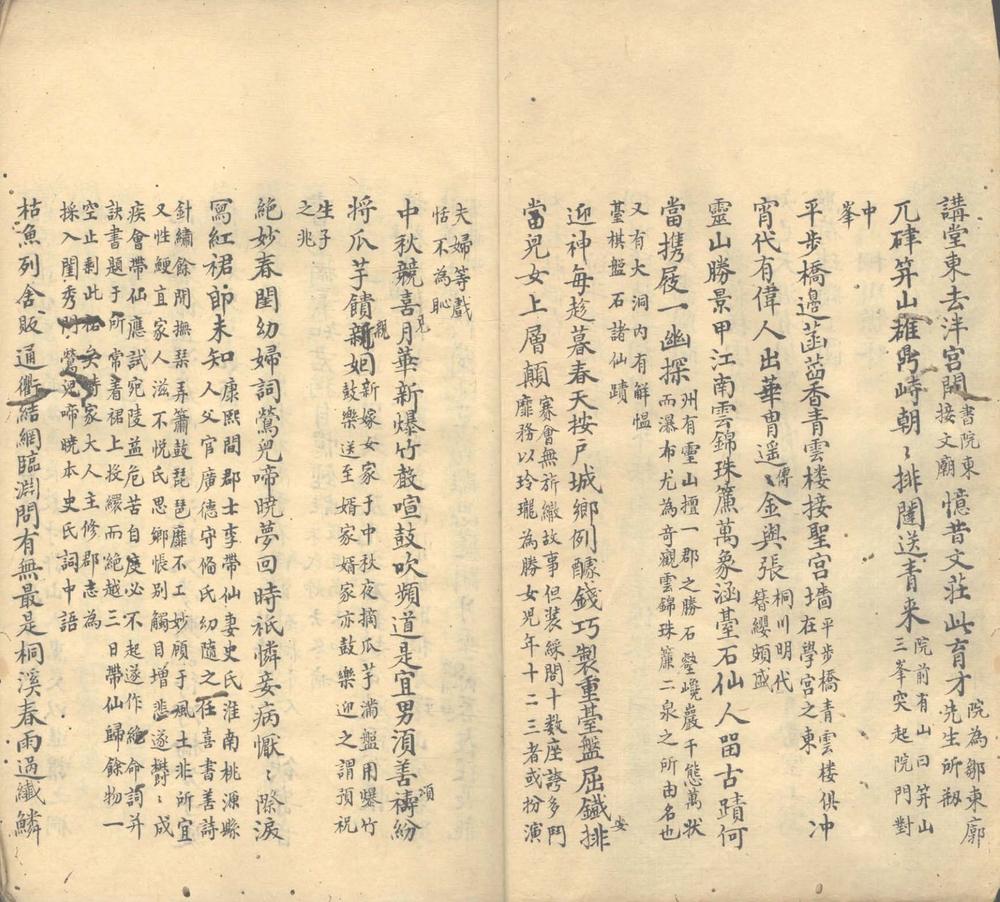 講堂東去泮宮開書院東接文廟憶昔文莊此育才院為鄒東廓先生所剏
兀硉筭山雄鼎峙朝〻排闥送青来院前有山曰筭山三峯突起院門對
中峯
平步橋邊菡萏香青雲楼接聖宮墻平步橋青雲楼俱在學宮之東冲
宵代有偉人出華胄遥傳金與張桐川明代簪纓頗盛
靈山勝景甲江南雲錦珠簾萬象涵臺石仙人畱古蹟何
當携屐一幽探州有靈山擅一郡之勝石壑巉巖千態萬状而瀑布尤為竒觀雲錦珠簾二泉之所由名也
又有大洞内有解愠臺棋盤石諸仙蹟
迎神每趁暮春天按戶城鄉例醵錢巧製重臺盤屈鐡排
當兒女上層顛賽會無旂繖故事但装綵閣十數座誇多鬥靡務以玲瓏為勝女兒年十二三者或扮演
安
夫婦等戲恬不為恥
中秋競喜月華新爆竹聲喧鼓吹頻道是宜男湏善禱紛
将瓜芋饋親姻新嫁女家于中秋夜摘瓜芋満盤用爆竹鼓樂送至婿家婿家亦鼓樂迎之謂預祝
生子之兆
絶妙春閨幼婦詞鶯兒啼曉夢回時祇憐妾病懨〻際淚
寫紅裙郎未知康熙間郡士李帶仙妻史氏淮南桃源縣人父官廣德守偹氏幼隨之任喜書善詩
針繡餘閒撫琹弄簫鼓琵琶靡不工妙顧于風土俗非所宜又性鯁直家人滋不悦氏思鄉悵别觸目增悲遂欝〻成
疾會帶仙應試宛陵益危苦自度必不起遂作絶命詞并訣書題于所常著裙上投繯而絶越三日帶仙歸餘物一
空止剩此裙矣時家大人主修郡志為採入閨秀門鶯兒啼曉本史氏詞中語
枯漁列舍販通衢結網臨淵問有無最是桐溪春雨過纖鱗